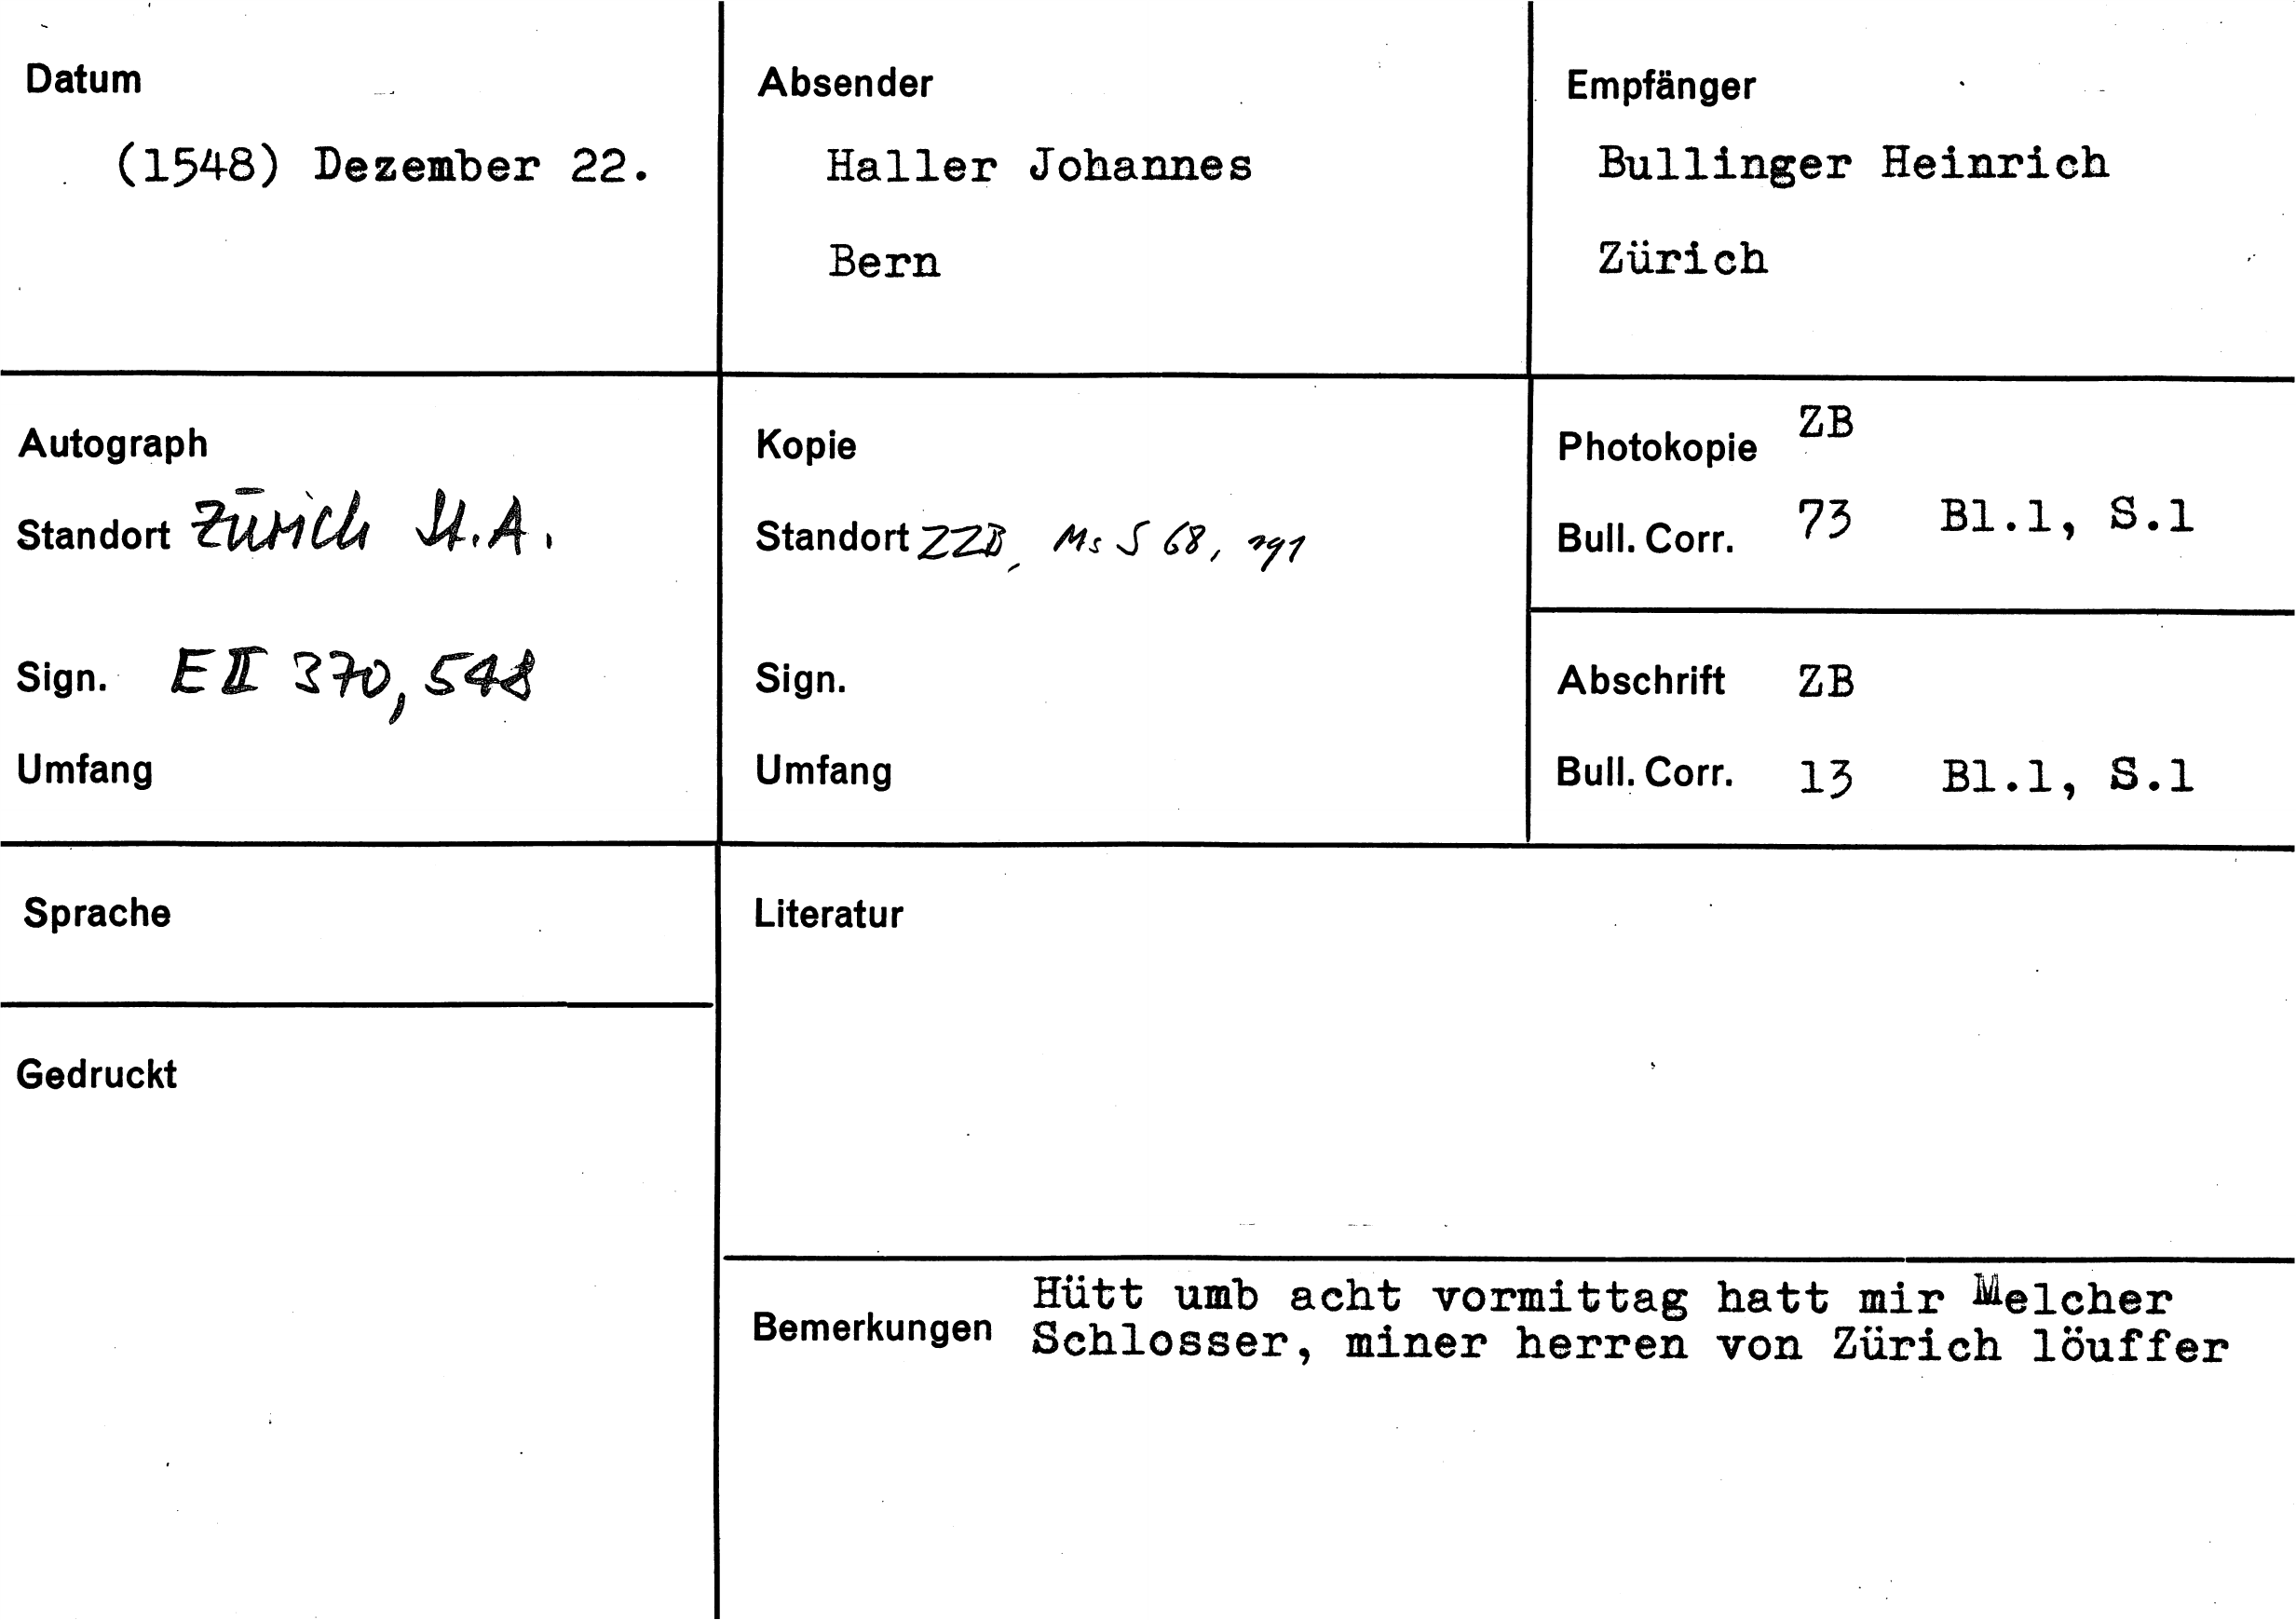 Datum
(1548) Dezember 22.
Absender
Haller Johannes
Bern
Empfänger
Bullinger Heinrich
Zürich
Autograph
Standort Zürich St.A.
Sign. E II 370, 548
Umfang
Kopie
Standort ZZB, Ms S 68,
Sign.
Umfang
Photokopie ZB
Bull. Corr. 73 Bl.1, S.1
Abschrift ZB
Bull. Corr. 13 Bl.1, S.1
Sprache
Gedruckt
Literatur
Bemerkungen
Hütt umb acht vormittag hatt mir Melcher
Schlosser, miner herren von Zürich löuffer